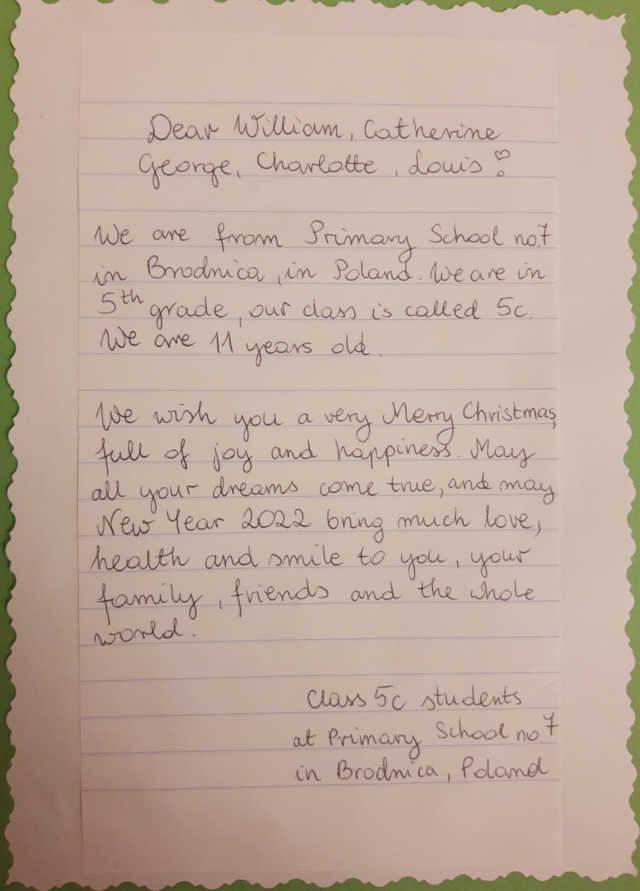 Dear William, Catherine
George, Charlotte, Louis!
We are from Primary School no.7
in Brodnica, in Poland. We are in
5th grade, our class is called 5c.
We are 11 years old.
We wish you a very Merry Christmas
full of joy and happiness. May
all your dreams come true, and may
New Year 2022 bring much love,
health and smile to you, your
family, friends and the whole
world.
Class 5c students
at Primary School no.7
in Brodnica, Poland